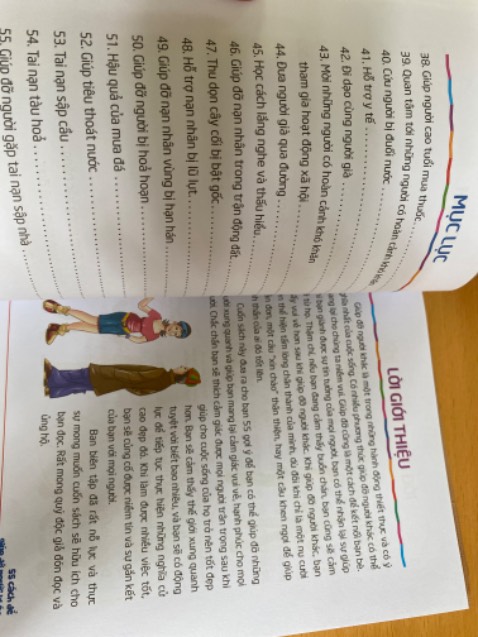 MỤC LỤC
38. Giúp người cao tuổi mua thuốc
39. Quan tâm tới những người có hoàn cảnh khó khăn
40. Cứu người bị đuối nước
41. Hỗ trợ y tế
42. Đi dạo cùng người già
43. Mời những người có hoàn cảnh khó khăn
tham gia hoạt động xã hội
44. Đưa người già qua đường
45. Học cách lắng nghe và thấu hiểu
46. Giúp đỡ nạn nhân trong trận động đất
47. Thu dọn cây cối bị bật gốc
48. Hỗ trợ nạn nhân bị lũ lụt
49. Giúp đỡ nạn nhân vùng bị hạn hán
50. Giúp đỡ người bị hoả hoạn
51. Hậu quả của mưa đá
52. Giúp tiêu thoát nước
53. Tai nạn sập cầu
54. Tai nạn tàu hoả
55. Giúp đỡ người gặp tai nạn sập nhà
LỜI GIỚI THIỆU
Giúp đỡ người khác là một trong những hành động thiết thực và có ý
nghĩa nhất của cuộc sống. Có nhiều phương thức giúp đỡ người khác có thể
mang lại cho chúng ta niềm vui. Giúp đỡ cũng là một cách để kết nối bạn bè.
bạn giành được sự tin tưởng của mọi người, bạn có thể nhận lại sự giúp
từ họ. Thậm chí, nếu bạn đang cảm thấy buồn chán, bạn cũng sẽ cảm
vui vẻ hơn sau khi giúp đỡ người khác. Khi giúp đỡ người khác, bạn
thể hiện tấm lòng chân thành của mình, dù đôi khi chỉ là một nụ cười
đơn, một câu "xin chào" thân thiện, hay một câu khen ngợi để giúp
thần của ai đó tốt lên.
Cuốn sách này đưa ra cho bạn 55 gợi ý để bạn có thể giúp đỡ những
người xung quanh và giúp bạn mang lại cảm giác vui vẻ, hạnh phúc cho mọi
người. Chắc chắn bạn sẽ thích cảm giác được mọi người trân trọng sau khi
giúp cho cuộc sống của họ trở nên tốt đẹp
hơn. Bạn sẽ cảm thấy thế giới xung quanh
tuyệt vời biết bao nhiêu, và bạn sẽ có động
lực để tiếp tục thực hiện những nghĩa cử
cao đẹp đó. Khi làm được nhiều việc tốt,
bạn sẽ củng cố được niềm tin và sự gắn kết
của bạn với mọi người.
Ban biên tập đã rất nỗ lực và thực
sự mong muốn cuốn sách sẽ hữu ích cho
bạn đọc. Rất mong quý độc giả đón đọc và
ủng hộ.
55 cách để